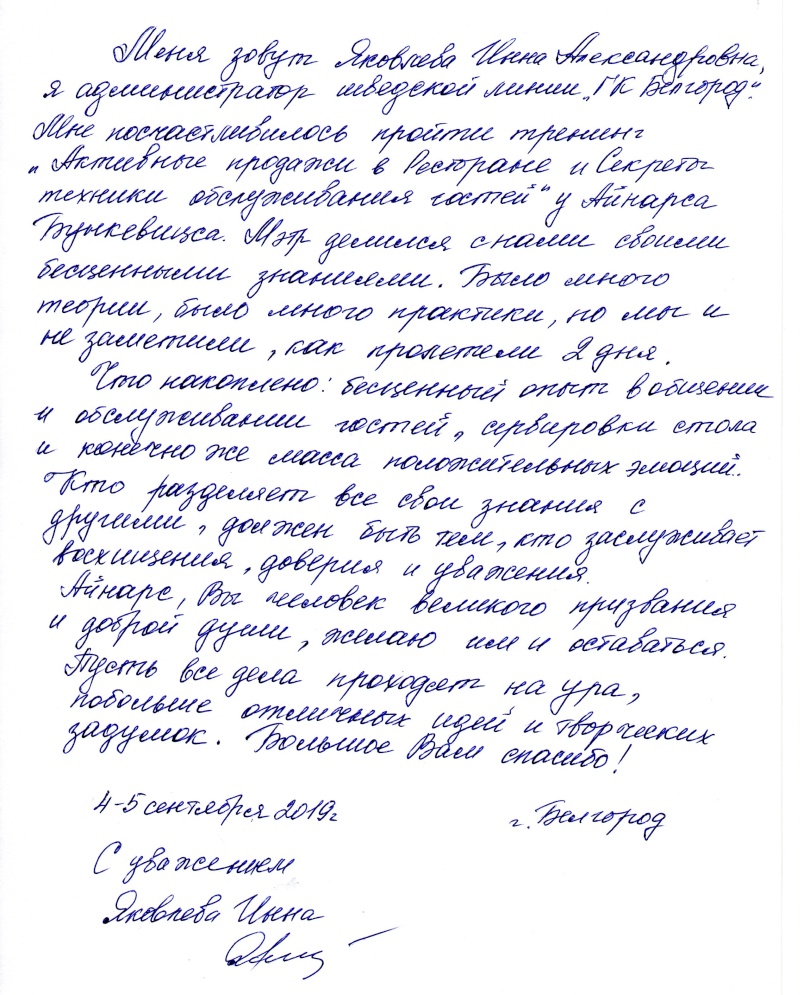 Меня зовут Яковлева Инна Александровна,
я администратор шведской линии „ГК Белгород".
Мне посчастливилось пройти тренинг
„Активные продажи в Ресторане и Секреты
техники обслуживания гостей" у Айнарса
Бункевицса. Мэтр делился с нами своими
бесценными знаниями. Было много
теории, было много практики, но мы и
не заметили, как пролетели 2 дня.
Что накоплено: бесценный опыт в общении
и обслуживании гостей, сервировки стола
и конечно же масса положительных эмоций.
"Кто разделяет все свои знания с
другими, должен быть тем, кто заслуживает
восхищения, доверия и уважения.
Айнарс, Вы человек великого призвания
и доброй души, желаю им и оставаться.
Пусть все дела проходят на ура,
побольше отличных идей и творческих
задумок. Большое Вам спасибо!
4-5 сентября 2019г
г. Белгород
С уважением
Яковлева Инна